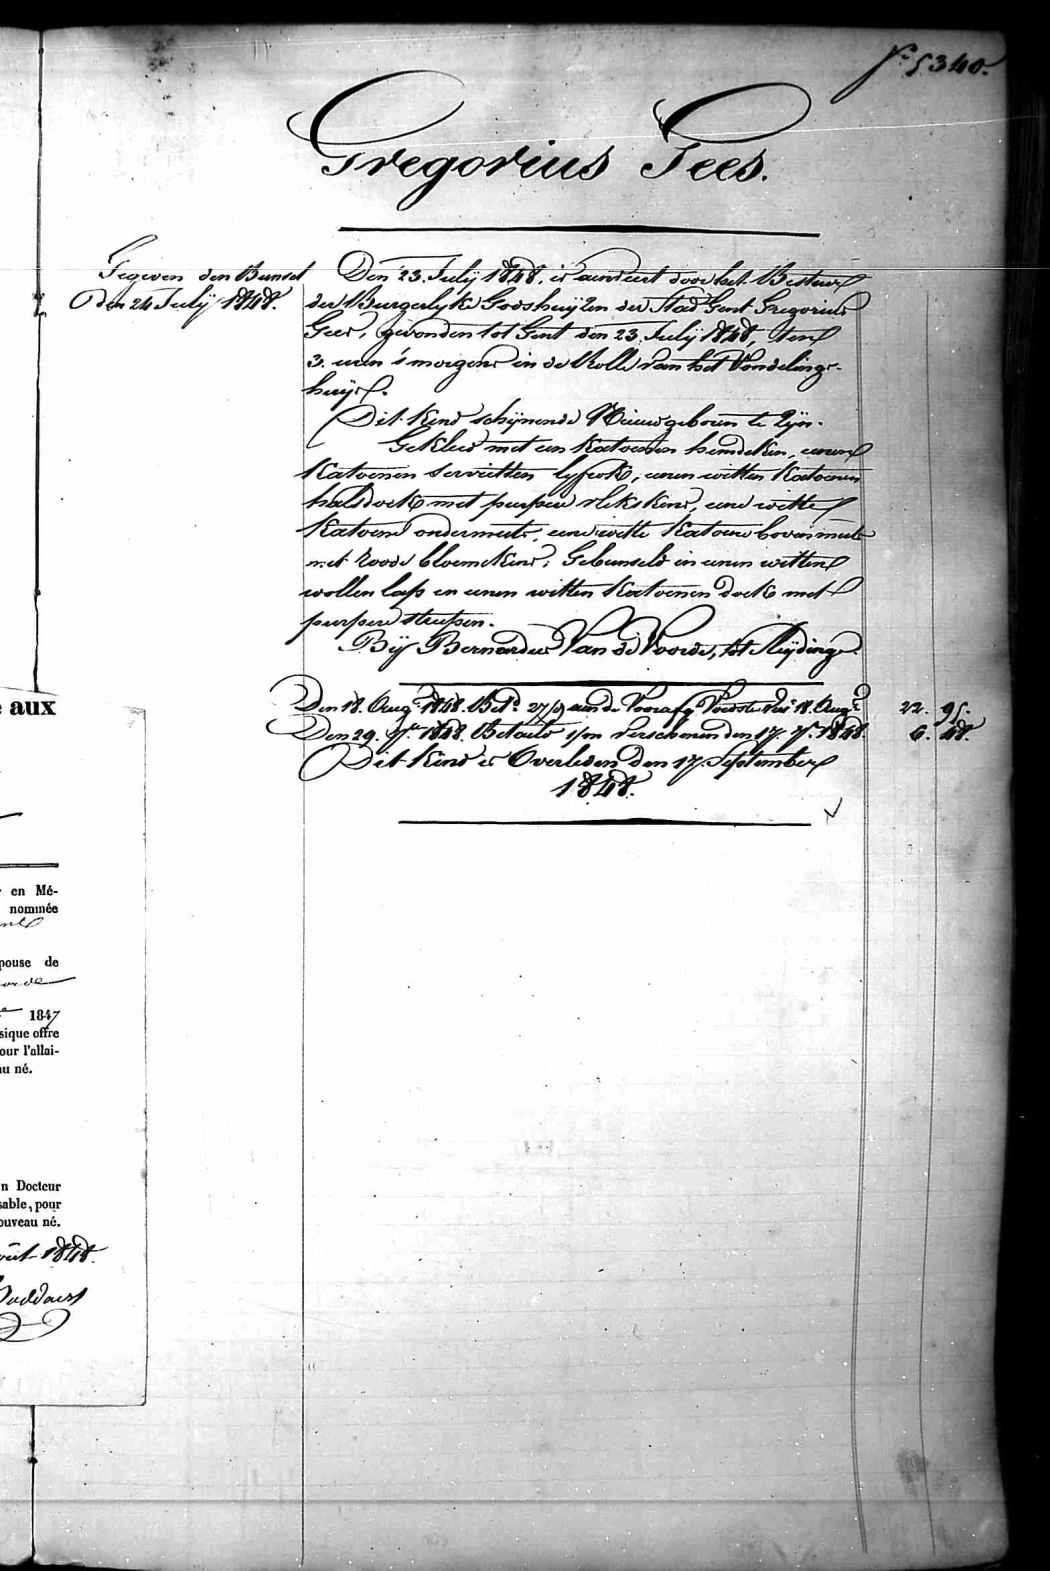 5340.
Gregorius Gees.
Gegeven den Bunsel
den 24 Julij 1848.
Den 23. Julij 1848. is aenveert door het Bestuur
der Burgerlyke Godshuyzen der Stad Gent Gregorius
Gees, gevonden tot Gent den 23. Julij 1848, ten
3. uren 's morgens in de Rolle van het Vondelings-
huys.
Dit Kind schijnende Nieuwgeboren te zyn.
Gekleed met een Katoenen hemdeken, eenen
Katoenen servietten lyfrok, eenen witten Katoenen
halsdoek met purper vlekskens, eene witte
Katoene ondermuts, eene witte Katoene bovenmuts
met roode bloemekens, Gebunseld in eenen witten
wollen lap en eenen witten Katoenen doek met
purpere streepen.
Bij Bernardus Van de Voorde, tot Sleydinge.
Den 18. Augt. 1848. Betd. 27/9 aen de Voorafg. Voedster 18. Augt. 22. 95.
Den 29. 7r. 1848. Betaeld 1/m verschenen den 17. 7r. 1848. 6. 48.
Dit Kind is Overleden den 17. September
1848.
aux
en Mé-
nommée
pouse de
1847
sique offre
our l'allai-
au né.
n Docteur
sable, pour
ouveau né.
oût 1848.